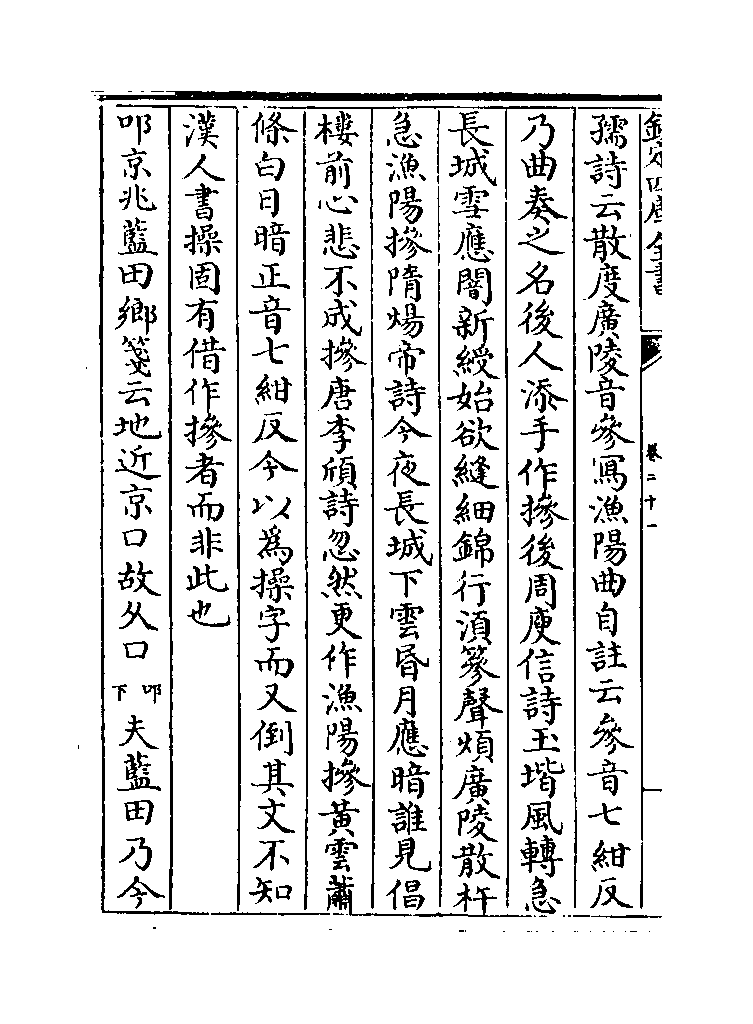 欽定四庫全書
卷二十一
孺詩云散度廣陵音參寫漁陽曲自註云參音七紺反
乃曲奏之名後人添手作摻後周庾信詩玉堦風轉急
長城雪應闇新綬始欲縫細錦行須篸聲煩廣陵散杵
急漁陽摻隋煬帝詩今夜長城下雲昏月應暗誰見倡
樓前心悲不成摻唐李頎詩忽然更作漁陽摻黃雲蕭
條白日暗正音七紺反今以為操字而又倒其文不知
漢人書操固有借作摻者而非此也
叩京兆藍田鄉箋云地近京口故从口叩下夫藍田乃今